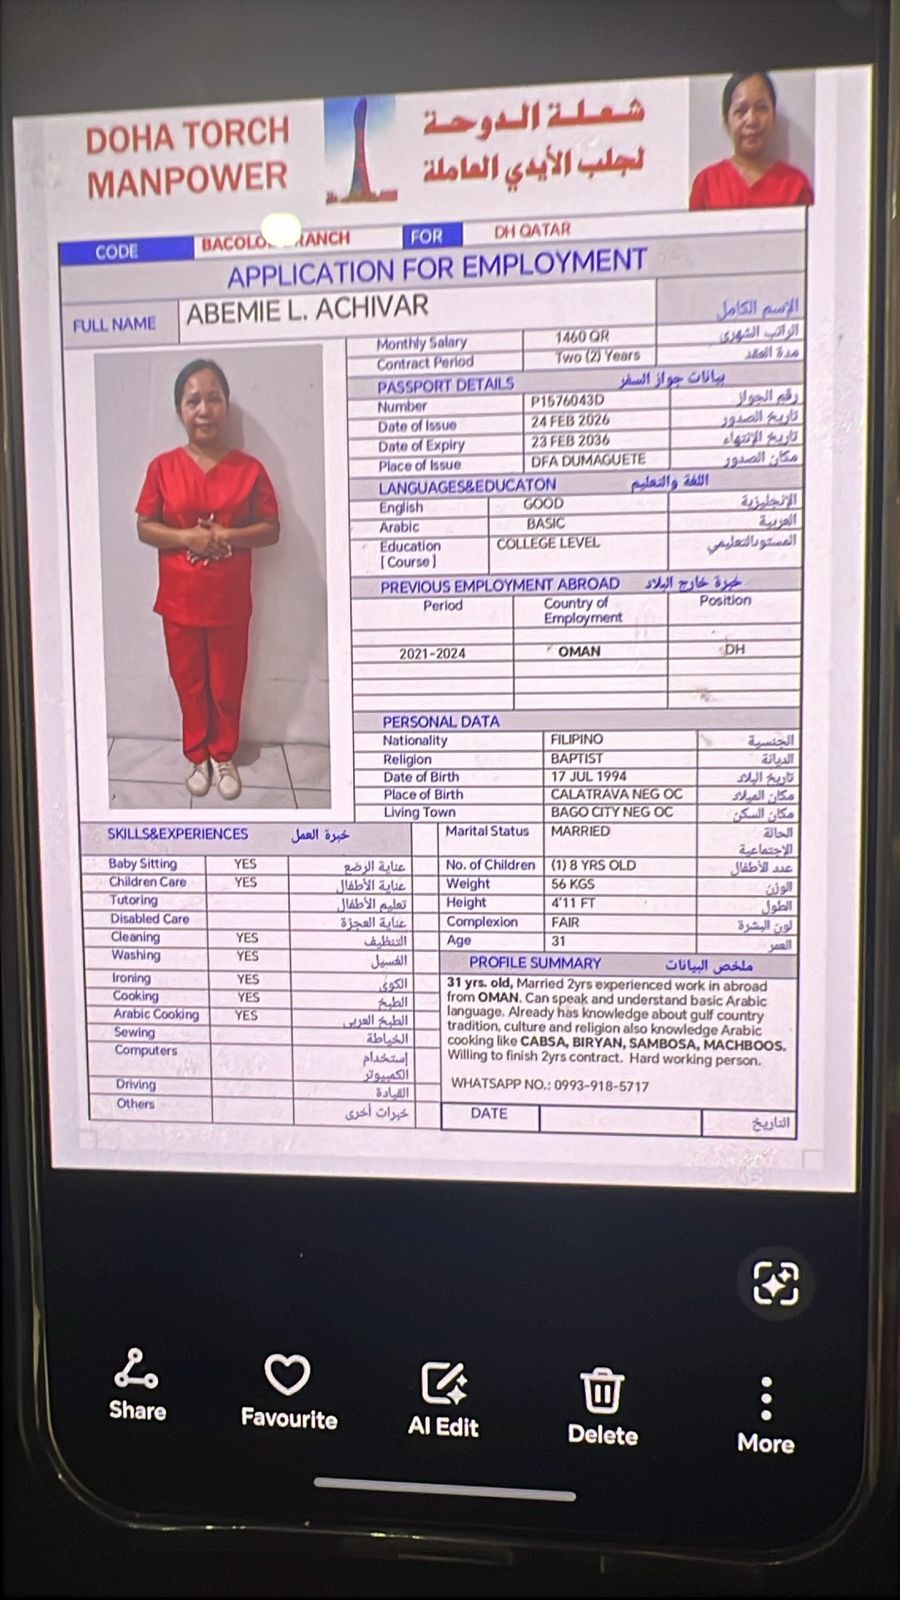 DOHA TORCH
MANPOWER
شعلة الدوحة
لجلب الأيدي العاملة
CODE BACOLO RANCH FOR DH QATAR
APPLICATION FOR EMPLOYMENT
FULL NAME ABEMIE L. ACHIVAR الإسم الكامل
Monthly Salary 1460 QR الراتب الشهري
Contract Period Two (2) Years مدة العقد
PASSPORT DETAILS بيانات جواز السفر
Number P1576043D رقم الجواز
Date of Issue 24 FEB 2026 تاريخ الصدور
Date of Expiry 23 FEB 2036 تاريخ الإنتهاء
Place of Issue DFA DUMAGUETE مكان الصدور
LANGUAGES&EDUCATON اللغة والتعليم
English GOOD الإنجليزية
Arabic BASIC العربية
Education COLLEGE LEVEL
[ Course ]
PREVIOUS EMPLOYMENT ABROAD خبرة خارج البلاد
Period Country of Employment Position
2021-2024 OMAN DH
PERSONAL DATA
Nationality FILIPINO الجنسية
Religion BAPTIST الديانة
Date of Birth 17 JUL 1994 تاريخ
Place of Birth CALATRAVA NEG OC مكان الميلاد
Living Town BAGO CITY NEG OC مكان السكن
Marital Status MARRIED الحالة الإجتماعية
No. of Children (1) 8 YRS OLD عدد الأطفال
Weight 56 KGS الوزن
Height 4'11 FT الطول
Complexion FAIR لون البشرة
Age 31 العمر
SKILLS&EXPERIENCES خبرة العمل
Baby Sitting YES عناية الرضع
Children Care YES عناية الأطفال
Tutoring تعليم الأطفال
Disabled Care عناية العجزة
Cleaning YES التنظيف
Washing YES الغسيل
Ironing YES الكوي
Cooking YES الطبخ
Arabic Cooking YES الطبخ العربي
Sewing الخياطة
Computers إستخدام الكمبيوتر
Driving القيادة
Others خبرات أخرى
PROFILE SUMMARY ملخص البيانات
31 yrs. old, Married 2yrs experienced work in abroad
from OMAN. Can speak and understand basic Arabic
language. Already has knowledge about gulf country
tradition, culture and religion also knowledge Arabic
cooking like CABSA, BIRYAN, SAMBOSA, MACHBOOS.
Willing to finish 2yrs contract. Hard working person.
WHATSAPP NO.: 0993-918-5717
DATE التاريخ
Share
Favourite
AI Edit
Delete
More